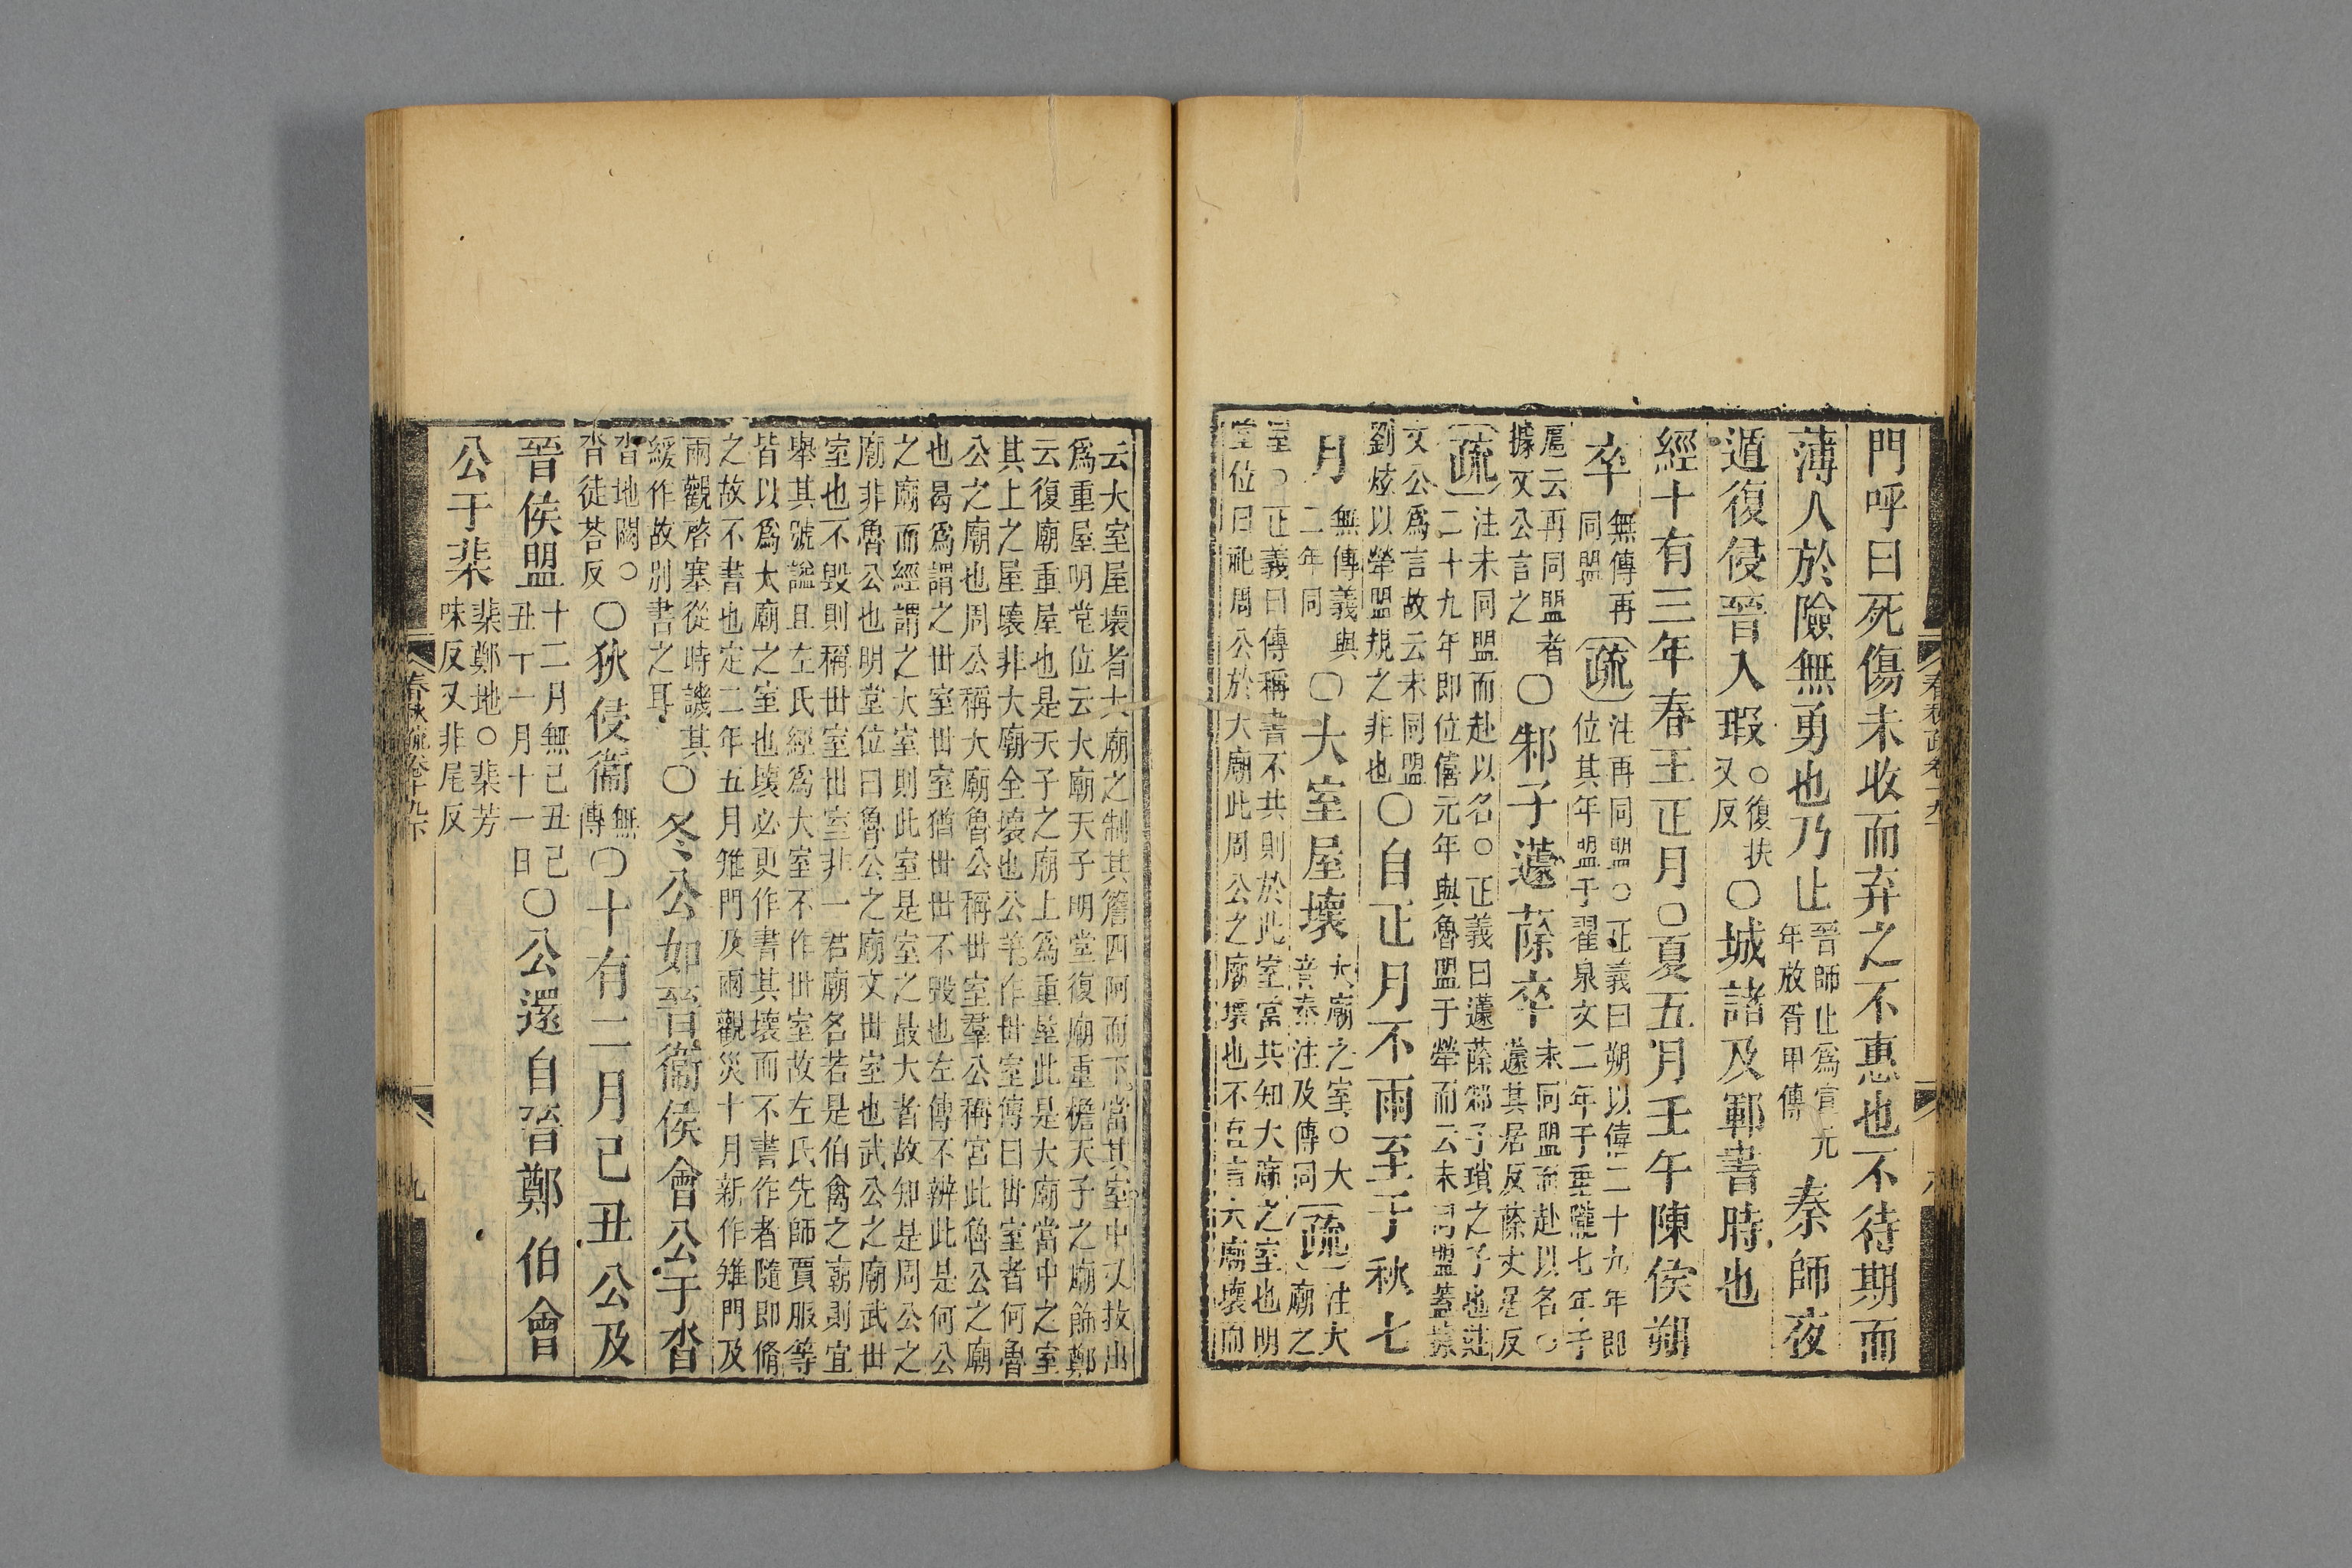 門呼曰死傷未收而弃之不惠也不待期而
薄人於險無勇也乃止晉師止爲宣元年放胥甲傳秦師夜
遁復侵晉入瑕○復扶又反○城諸及鄆書時也
經十有三年春王正月○夏五月壬午陳侯朔
卒無傳再同盟疏注再同盟○正義曰朔以僖二十九年即位其年盟于翟泉文二年于垂隴七年于
扈云再同盟者據文公言之○邾子蘧蒢卒未同盟而赴以名○蘧其居反蒢丈居反
疏注未同盟而赴以名○正義曰蘧蒢邾子瑣之子也莊二十九年即位僖元年與魯盟于犖而云未同盟蓋據
文公爲言故云未同盟劉炫以犖盟規之非也○自正月不雨至于秋七
月無傳義與二年同○大室屋壞大廟之室○大音泰注及傳同疏注大廟之
室○正義曰傳稱書不共則於此室當共知大廟之室也明
堂位曰祀周公於大廟此周公之廟壞也不直言大廟壞而
云大室屋壞者大廟之制其簷四阿而下當其室中又拔出
爲重屋明堂位云大廟天子明堂復廟重檐天子之廟飾鄭
云復廟重屋也是天子之廟上爲重屋此是大廟當中之室
其上之屋壞非大廟全壞也公羊作世室傳曰世室者何魯
公之廟也周公稱大廟魯公稱世室羣公稱宮此魯公之廟
也曷爲謂之世室世室猶世世不毀也左傳不辨此是何公
之廟而經謂之大室則此室是室之最大者故知是周公之
廟非魯公也明堂位曰魯公之廟文世室也武公之廟武世
室也不毀則稱世室世室非一君廟名若是伯禽之廟則宜
舉其號謚且左氏經爲大室不作世室故左氏先師賈服等
皆以爲太廟之室也壞必更作書其壞而不書作者隨即脩
之故不書也定二年五月雉門及兩觀災十月新作雉門及
兩觀啓塞從時譏其緩作故別書之耳○冬公如晉衞侯會公于沓
沓地闕○沓徒荅反○狄侵衞無傳○十有二月己丑公及
晉侯盟十二月無己丑己丑十一月十一日○公還自晉鄭伯會
公于棐棐鄭地○棐芳味反又非尾反